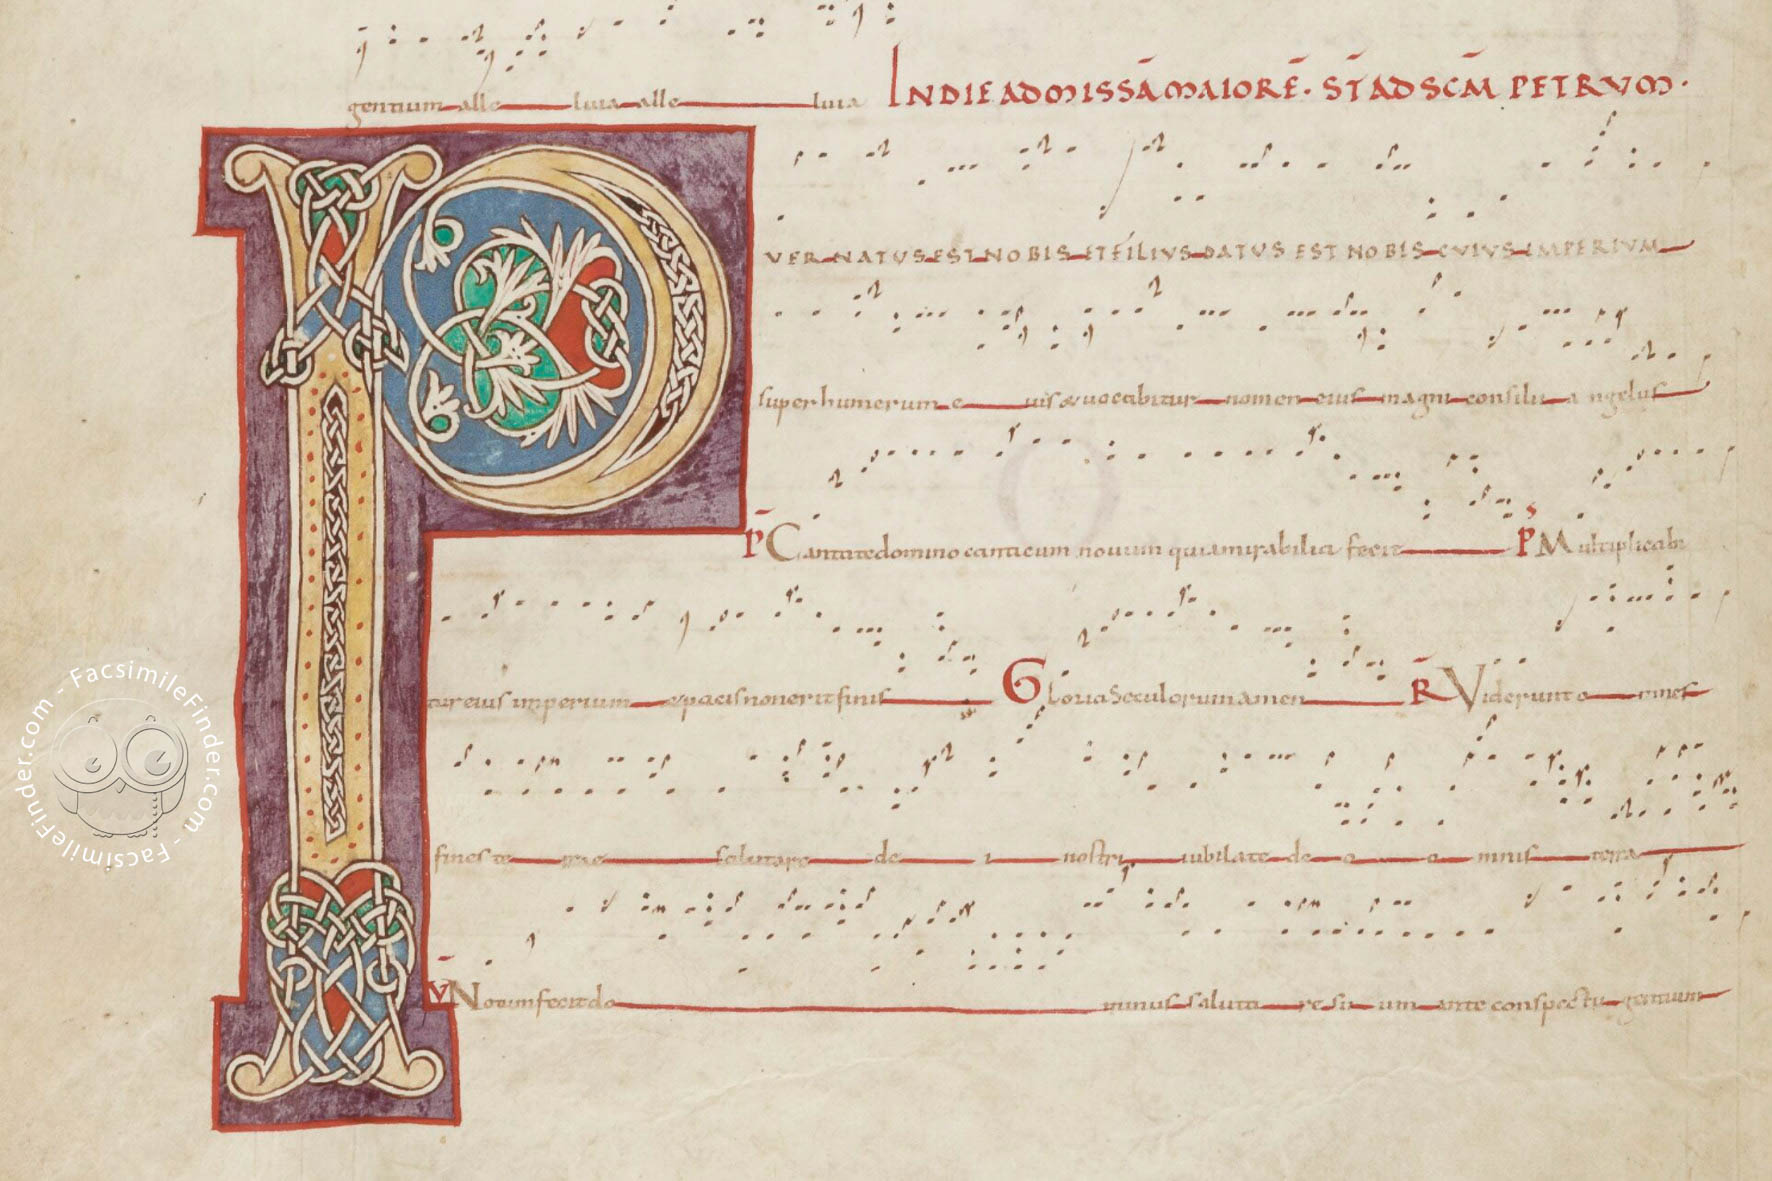 gentium alle luia alle luia INDIE AD MISSĀ MAIORĒ. ST̄ AD SC̄M PETRVM.
P
VER NATUS EST NOBIS ET FILIUS DATUS EST NOBIS CUIUS IMPERIUM
super humerum e ius & uocabitur nomen eius magni consilii angelus
P̄ Cantate domino canticum nouum quia mirabilia fecit Pˢ Multiplicabi
tur eius imperium & pacis non erit finis Gloria seculorum amen R̄ Viderunt o mnes
fines te rrae salutare de i nostri iubilate de o o mnis terra
V̄ Notum fecit do minus saluta re su um ante conspectu gentium
FacsimileFinder.com - FacsimileFinder.com - FacsimileFinder.com